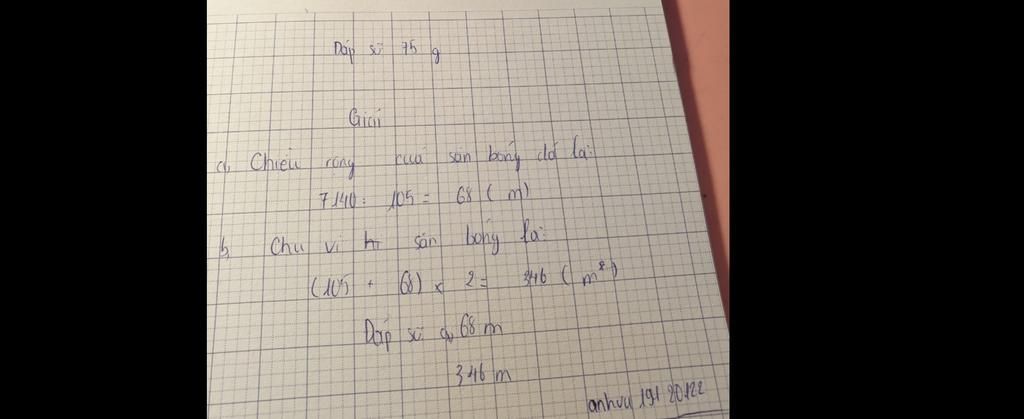 Đáp số 75 g
Giải
a, Chiều rộng của sân bóng đó là:
7140 : 105 = 68 ( m )
b, Chu vi sân bóng là:
(105 + 68) x 2 = 346 ( m² )
Đáp số a, 68 m
346 m
anhvu 191 20122